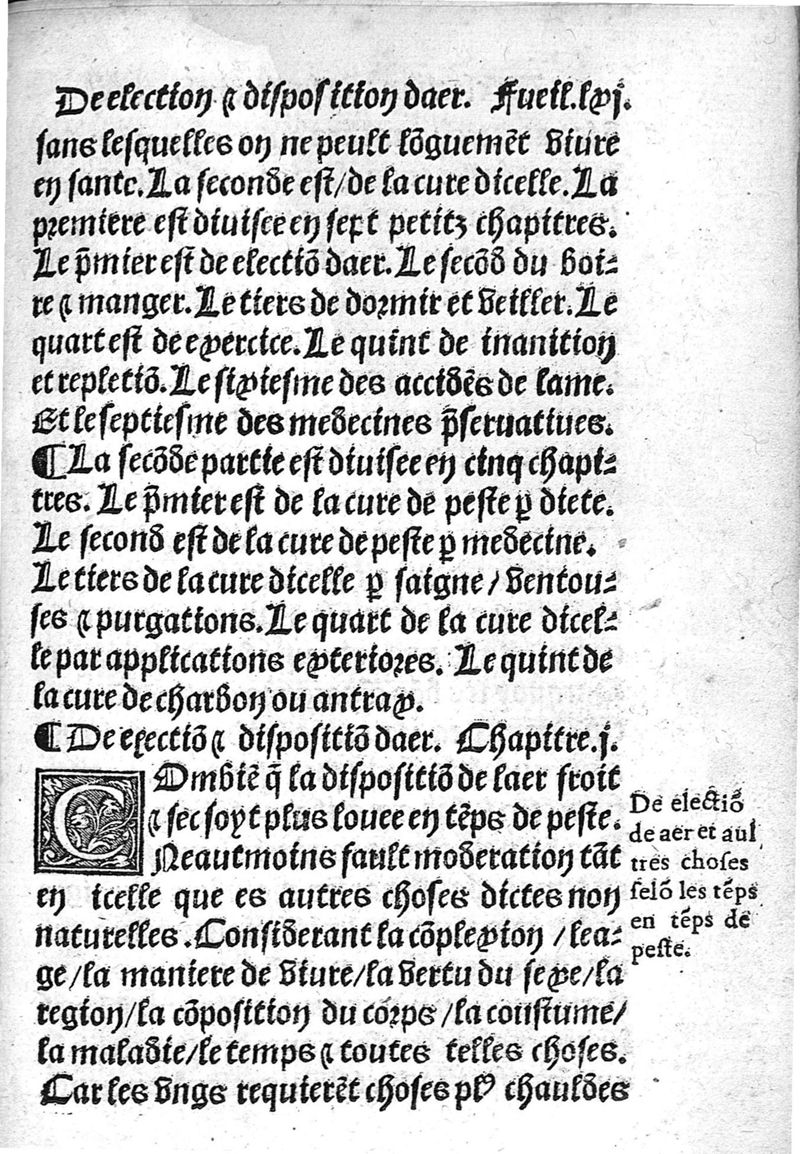 De election ⁊ disposition daer. Fueil.lxj.
sans lesquelles on ne peult lõguemẽt viure
en sante. La seconde est/de la cure dicelle. La
premiere est diuisee en sept petitz chapitres.
Le p̃mier est de electiõ daer. Le secõd du boi-
re ⁊ manger. Le tiers de dormir et veiller. Le
quart est de exercice. Le quint de inanition
et repletiõ. Le sixiesme des accidẽs de lame.
Et le septiesme des medecines p̃seruatiues.
¶ La secõde partie est diuisee en cinq chapi-
tres. Le p̃mier est de la cure de peste ꝑ diete.
Le second est de la cure de peste ꝑ medecine.
Le tiers de la cure dicelle ꝑ saigne/ventou-
ses ⁊ purgations. Le quart de la cure dicel-
le par applications exteriores. Le quint de
la cure de charbon ou antrax.
¶ De eꝛectiõ ⁊ dispositiõ daer. Chapitre.j.
COmbiẽ q̃ la dispositiõ de laer froit
⁊ sec soyt plus louee en tẽps de peste.
Neautmoins fault moderation tãt
en icelle que es autres choses dictes non
naturelles. Considerant la cõplexion/lea-
ge/la maniere de viure/la vertu du sexe/la
region/la cõposition du corps/la coustume/
la maladie/le temps ⁊ toutes telles choses.
Car les vngs requierẽt choses plꝰ chauldes
De electiõ
de aer et aul
tres choses
selõ les tẽps
en tẽps de
peste.